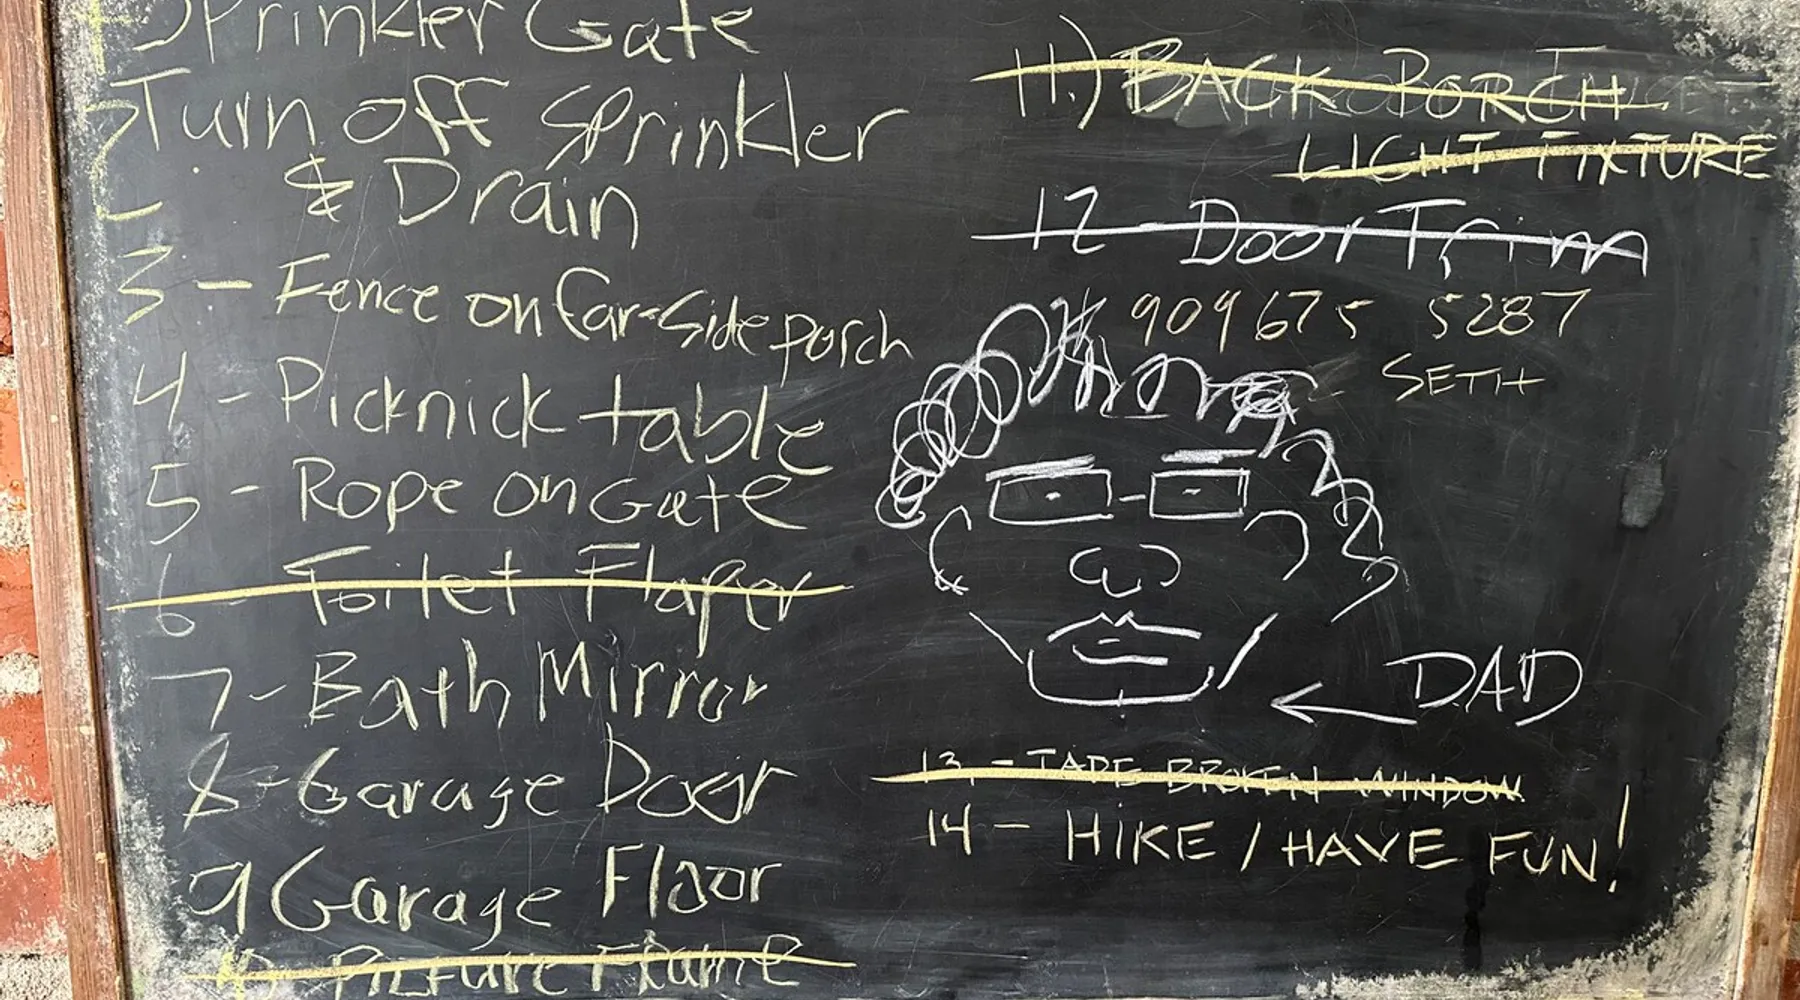 1 Sprinkler Gate
2 Turn off Sprinkler
& Drain
3 - Fence on far-side porch
4 - Picknick table
5 - Rope on Gate
6 - Toilet Flaper
7 - Bath Mirror
8 - Garage Door
9 Garage Floor
10 - Picture Frame
11.) BACK PORCH
LIGHT FIXTURE
12 - Door Trim
909 675 5287
SETH
DAD
13 - TAPE BROKEN WINDOW
14 - HIKE / HAVE FUN!